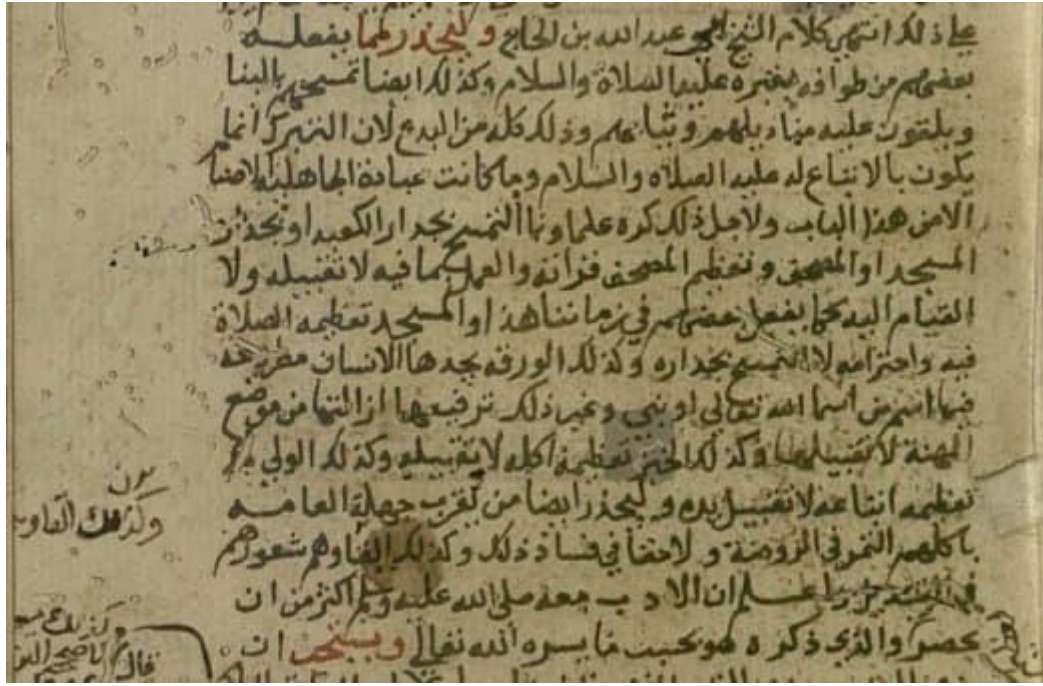 على ذلك انتهى كلام الشيخ ابي عبد الله بن الحاج وليحذر مما يفعله
بعضهم من طوافه بقبره عليه الصلاة والسلام وكذلك ايضا تمسحهم بالبنا
ويلقون عليه مناديلهم وثيابهم وذلك كله من البدع لان التبرك انما
يكون بالاتباع له عليه الصلاة والسلام وما كانت عبادة الجاهلية الاصنام
الا من هذا الباب ولاجل ذلك كره علماونا التمسح بجدار الكعبة او بجدران
المسجد او المصحف وتعظيم المصحف قراته والعمل بما فيه لا تقبيله ولا
القيام اليه كما يفعل بعضهم في زماننا هذا والمسجد تعظيمه الصلاة
فيه واحترامه لا التمسح بجداره وكذلك الورقه يجدها الانسان مطروحة
فيها اسم من اسما الله تعالى او نبي وغير ذلك ترفيعها ازالتها من موضع
المهنة لا تقبيلها وكذلك الخبز تعظيمه اكله لا تقبيله وكذلك الولي
تعظيمه اتباعه لا تقبيل يده وليحذر ايضا من تقرب جهلة العامة
باكلهم التمر في الروضة ولا خفا في فساد ذلك وكذلك القاوهم شعورهم
في واعلم ان الادب معه صلى الله عليه وسلم اكثر من ان
يحصر والذي ذكره هو بحسب ما يسره الله تعالى ويستحب ان
وكذلك
قال